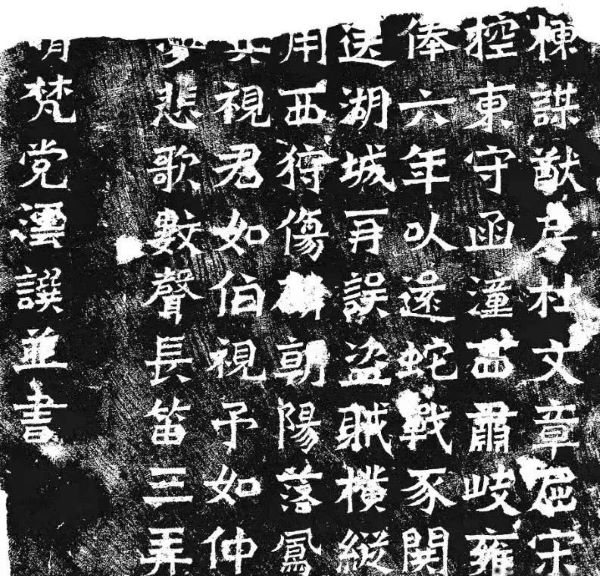 棟謀猷房杜文章屈宋
控東守函潼西肅岐雍
俸六年以還蛇戰豕
送湖城再誤盜賊橫縱
用西狩傷麟朝陽落鳳
視君如伯視予如仲
夢悲歌數聲長笛三弄
梵党譔並書